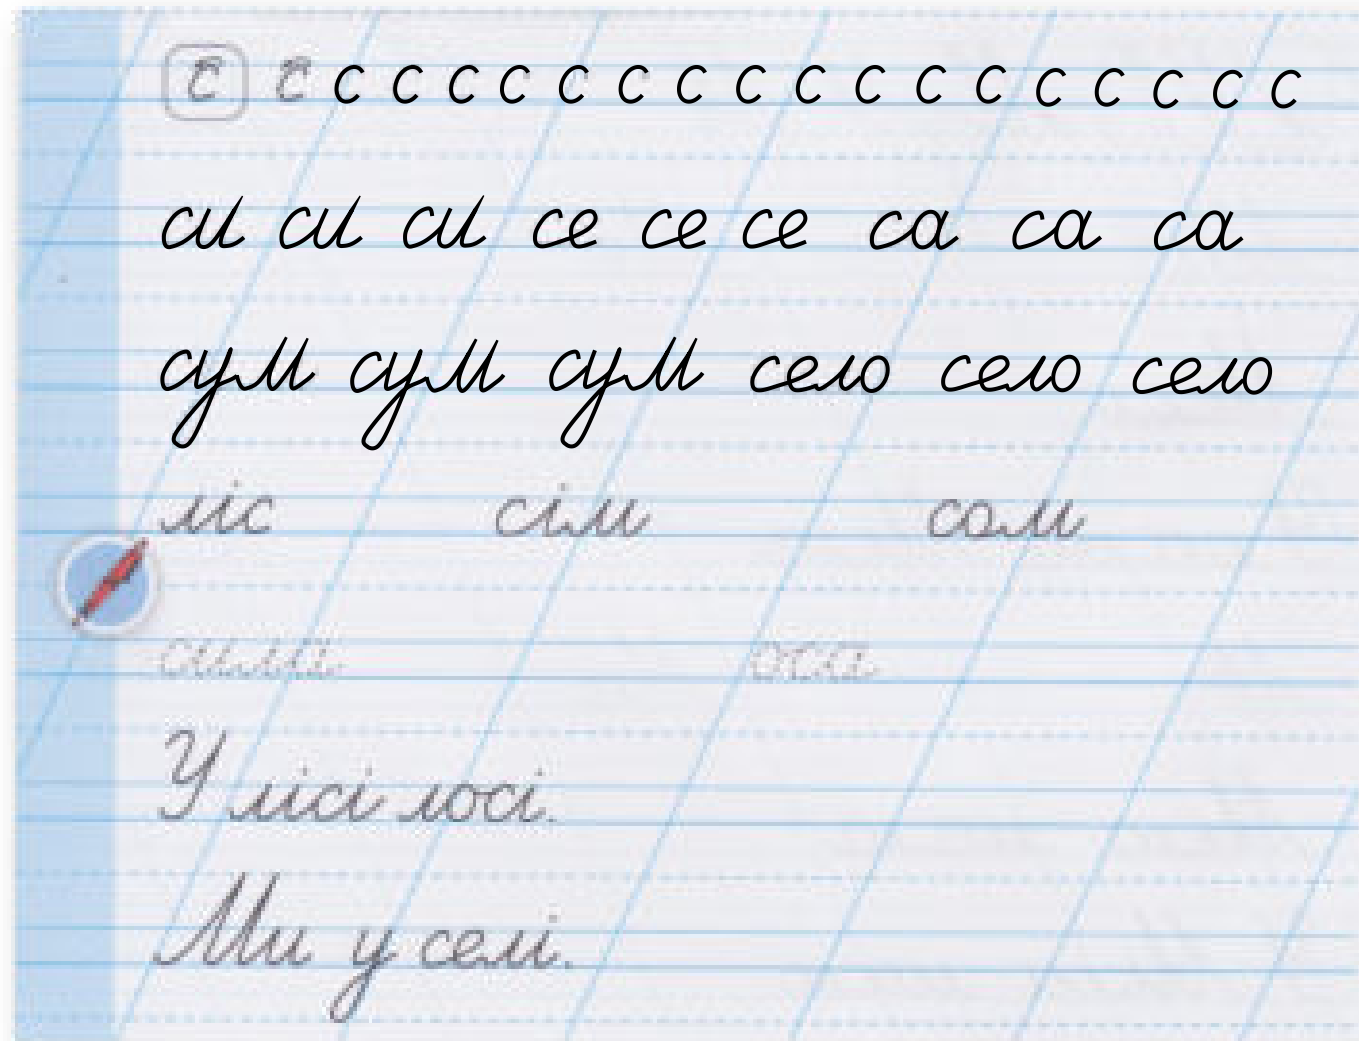 с с с с с с с с с с с с с с с с с с с
си си си се се се са са са
сум сум сум село село село
ліс сім сом
оса
У лісі лосі.
Ми у селі.